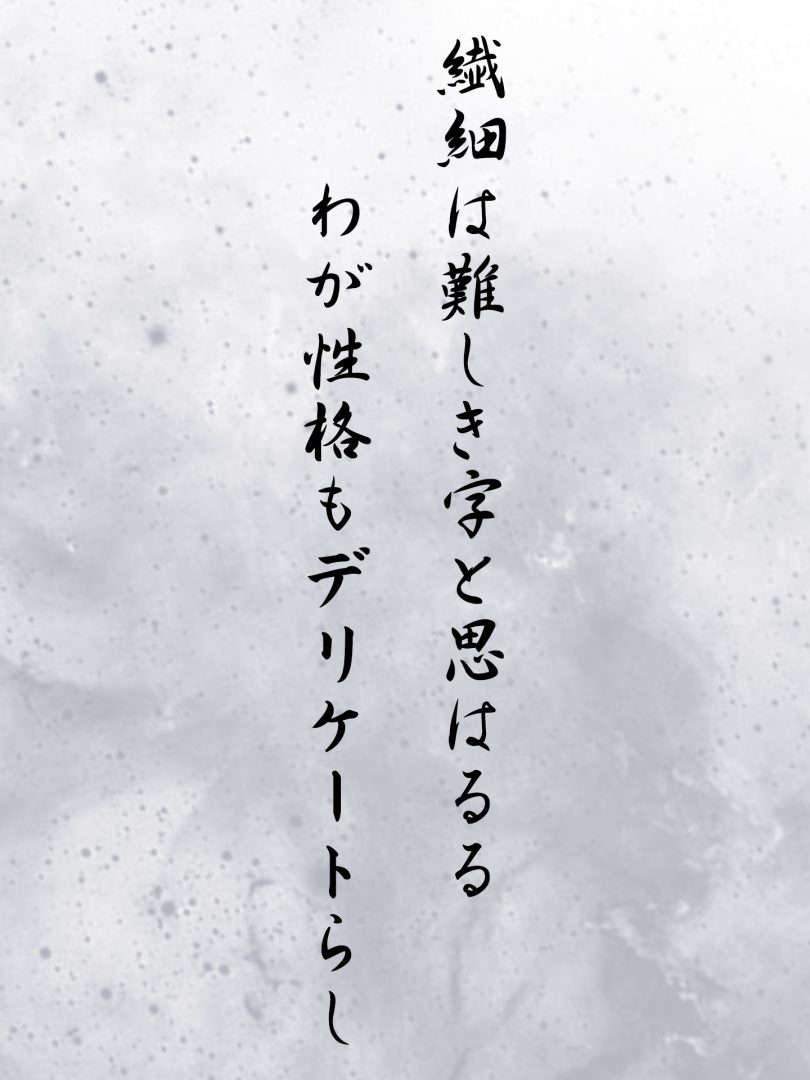 繊細は難しき字と思はるる
わが性格もデリケートらし